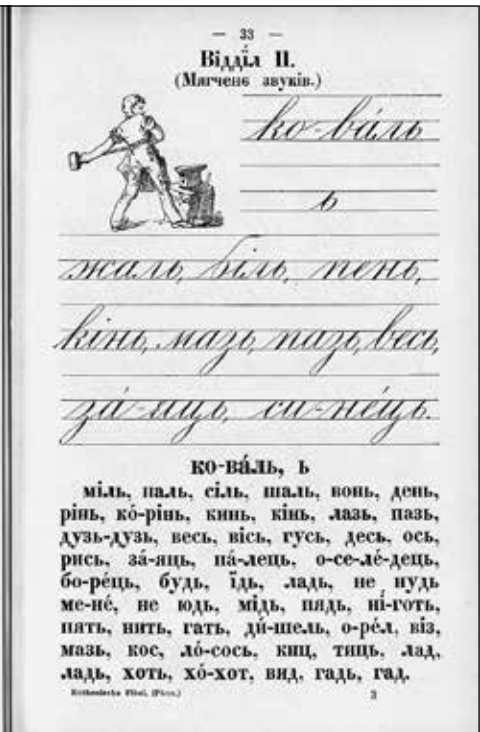 — 33 —
Відділ II.
(Мягченє звуків.)
ко-ва́ль
ь
жаль, біль, пень,
кінь, мазь, пазь, весь,
за́-яць, си-не́ць.
ко-ва́ль, ь
міль, паль, сіль, шаль, вонь, день,
рінь, ко́-рінь, кинь, кінь, лазь, пазь,
дузь-дузь, весь, вісь, гусь, десь, ось,
рись, за́-яць, па́-лець, о-се-ле́-дець,
бо-ре́ць, будь, їдь, ладь, не нудь
ме-не́, не юдь, мідь, пядь, ні́-готь,
пять, нить, гать, ди́-шель, о-ре́л, віз,
мазь, кос, ло́-сось, киц, тиць, лад,
ладь, хоть, хо́-хот, вид, гадь, гад.
Ruthenische Fibel. (Росс.) 3